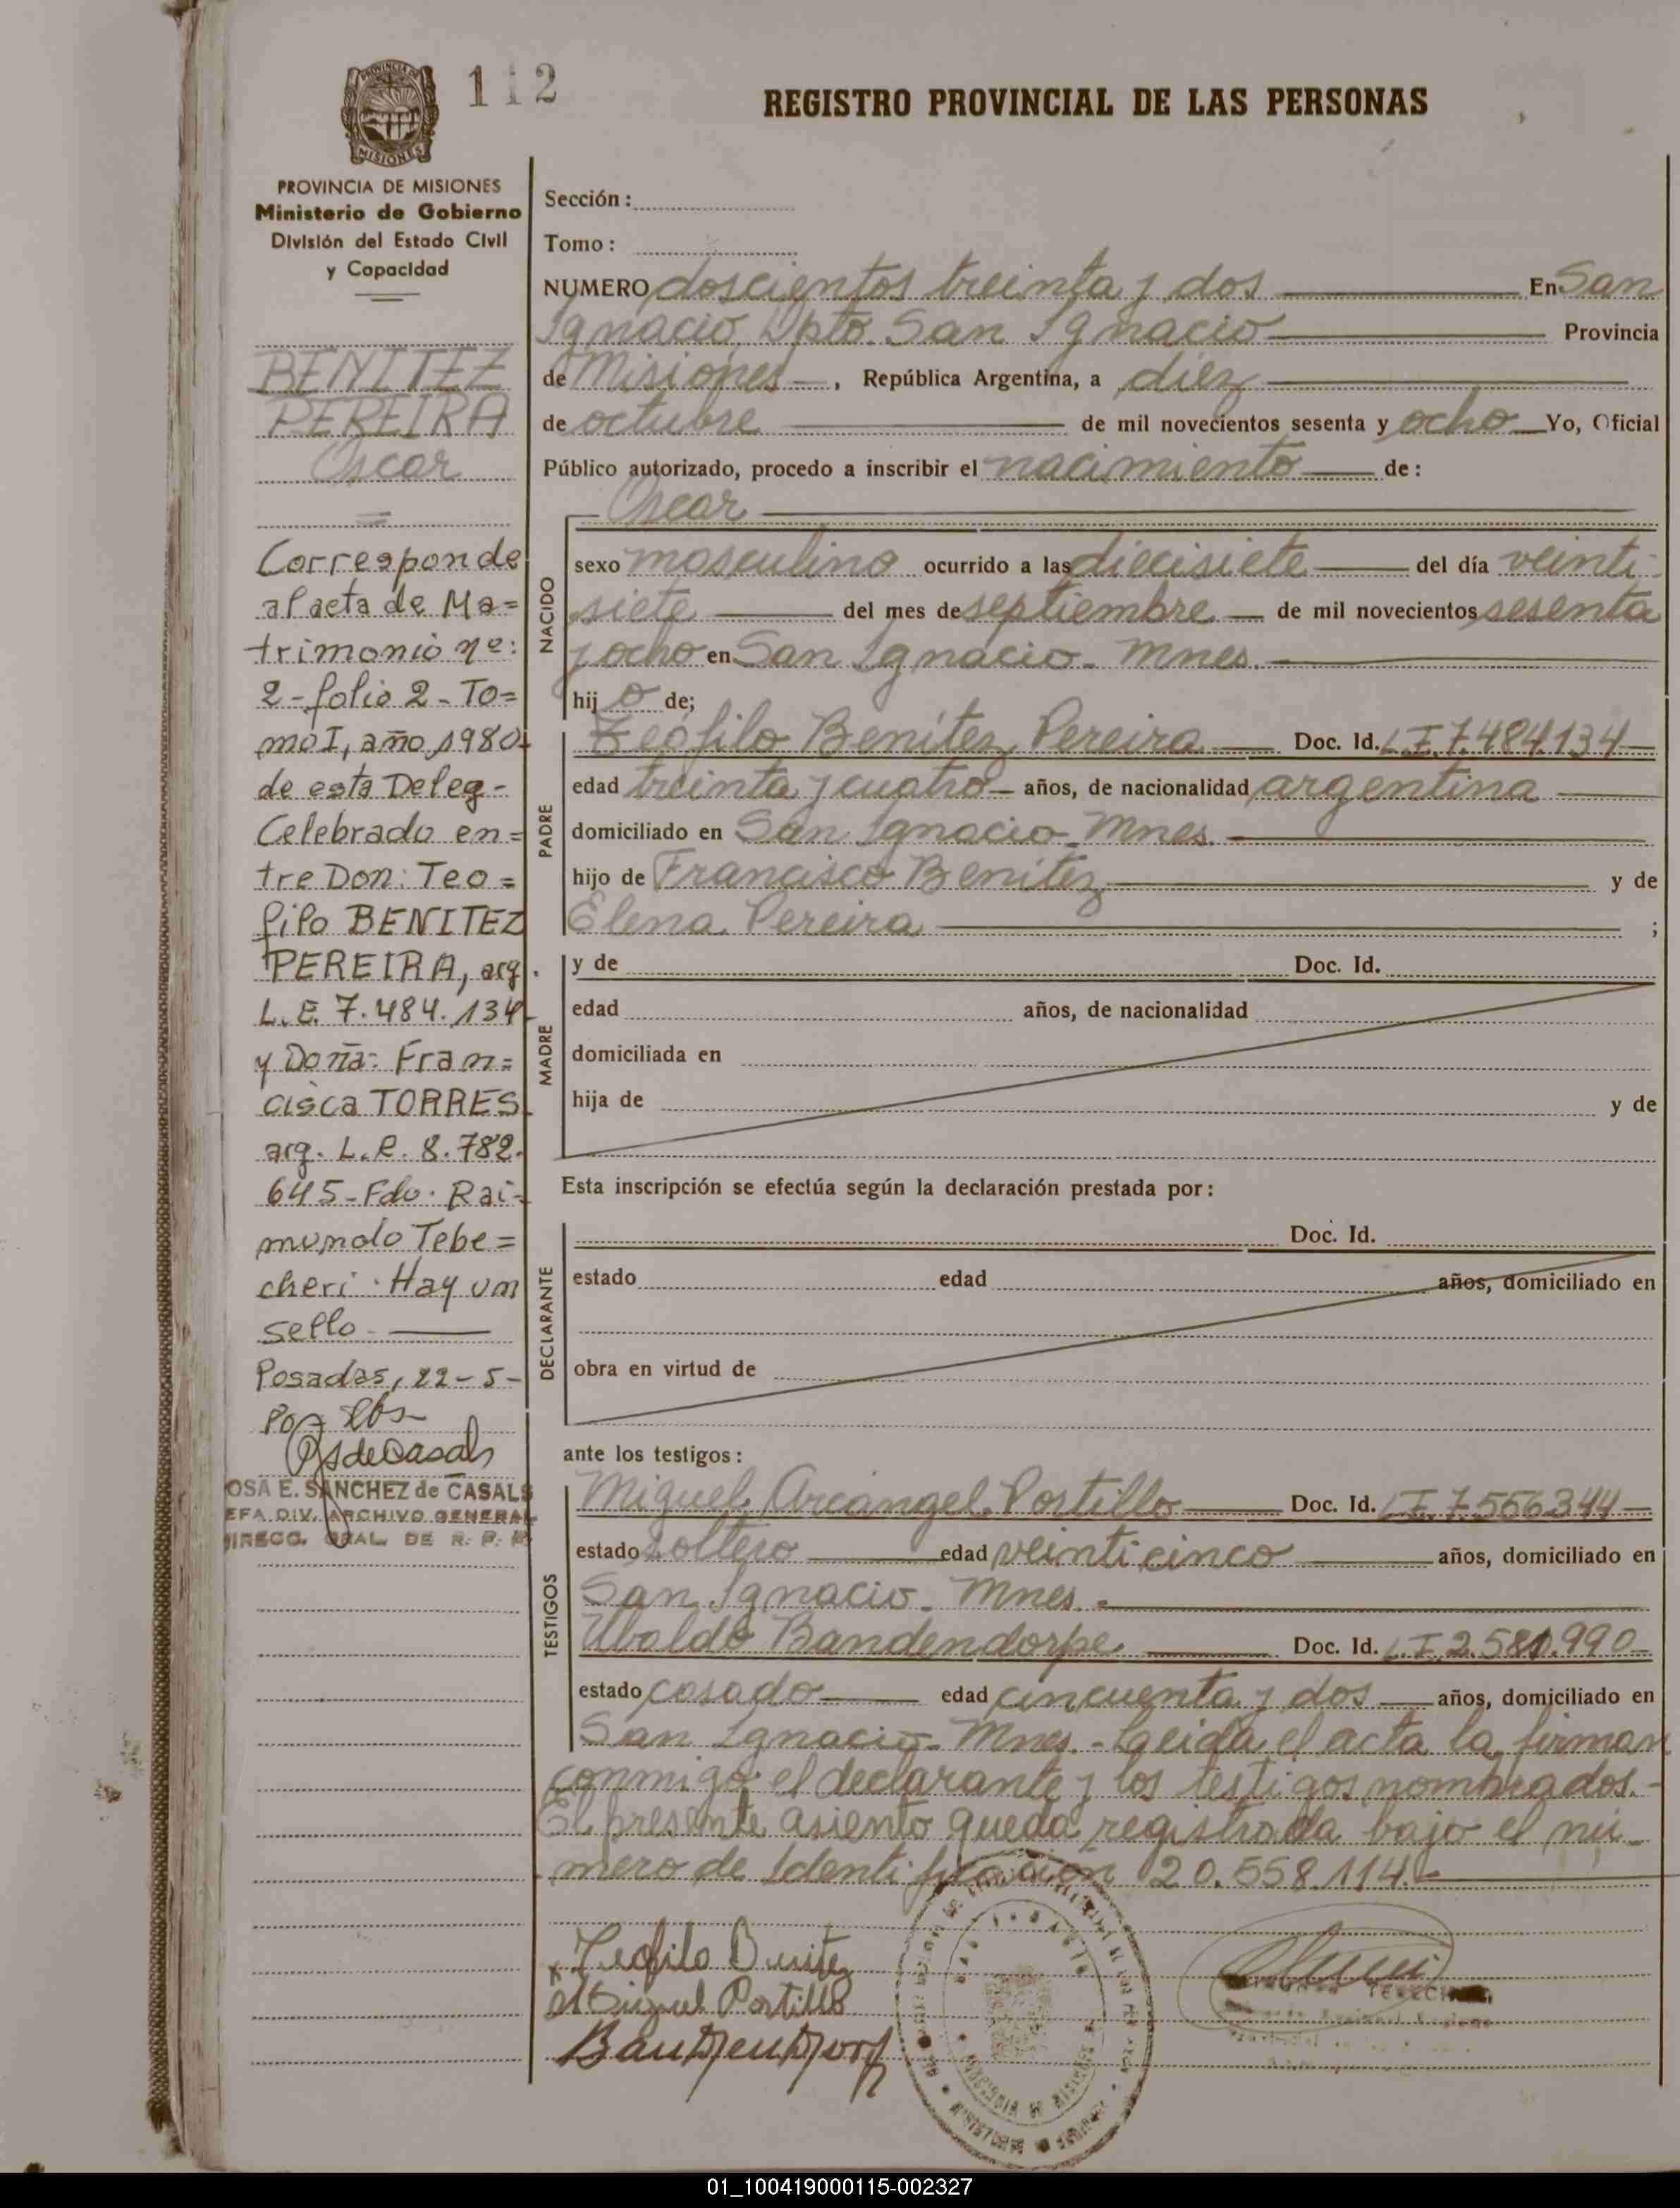 112
REGISTRO PROVINCIAL DE LAS PERSONAS
PROVINCIA DE MISIONES
MISIONES
PROVINCIA DE MISIONES
Ministerio de Gobierno
División del Estado Civil
y Capacidad
BENITEZ
PEREIRA
Oscar
Corresponde
al acta de Ma=
trimonio nº:
2-folio 2-To=
mo I, año 1980-
de esta Deleg-
Celebrado en=
tre Don: Teo=
filo BENITEZ
PEREIRA, arg.
L.E. 7.484.134-
y Doña: Fran=
cisca TORRES
arg. L.C. 8.782.
645-Fdo: Rai-
mundo Tebe=
cheri. Hay un
sello
Posadas, 22-5-
80
OSA E. SANCHEZ de CASALS
EFA DIV. ARCHIVO GENERAL
DIRECC. GRAL. DE R. P. P.
Sección:
Tomo:
NUMERO doscientos treinta y dos En San
Ignacio, Dpto. San Ignacio Provincia
de Misiones, República Argentina, a diez
de octubre de mil novecientos sesenta y ocho Yo, Oficial
Público autorizado, procedo a inscribir el nacimiento de:
Oscar
NACIDO
sexo masculino ocurrido a las diecisiete del día veinti-
siete del mes de septiembre de mil novecientos sesenta
y ocho en San Ignacio - Mnes.
hijo de;
PADRE
Teófilo Benítez Pereira Doc. Id. L.E. 7.484.134
edad treinta y cuatro años, de nacionalidad argentina
domiciliado en San Ignacio - Mnes.
hijo de Francisco Benítez y de
Elena Pereira ;
MADRE
y de Doc. Id.
edad años, de nacionalidad
domiciliada en
hija de y de
Esta inscripción se efectúa según la declaración prestada por:
DECLARANTE
Doc. Id.
estado edad años, domiciliado en
obra en virtud de
ante los testigos:
TESTIGOS
Miguel Arcángel Portillo Doc. Id. L.E. 7.556.344
estado soltero edad veinticinco años, domiciliado en
San Ignacio - Mnes.
Ubaldo Bandendorpe Doc. Id. L.E. 2.581.990
estado casado edad cincuenta y dos años, domiciliado en
San Ignacio - Mnes. - Leída el acta la firman
conmigo el declarante y los testigos nombrados.-
El presente asiento queda registrada bajo el nú-
mero de Identificación 20.558.114.-
x Teofilo Benitez
Miguel Portillo
01_100419000115-002327